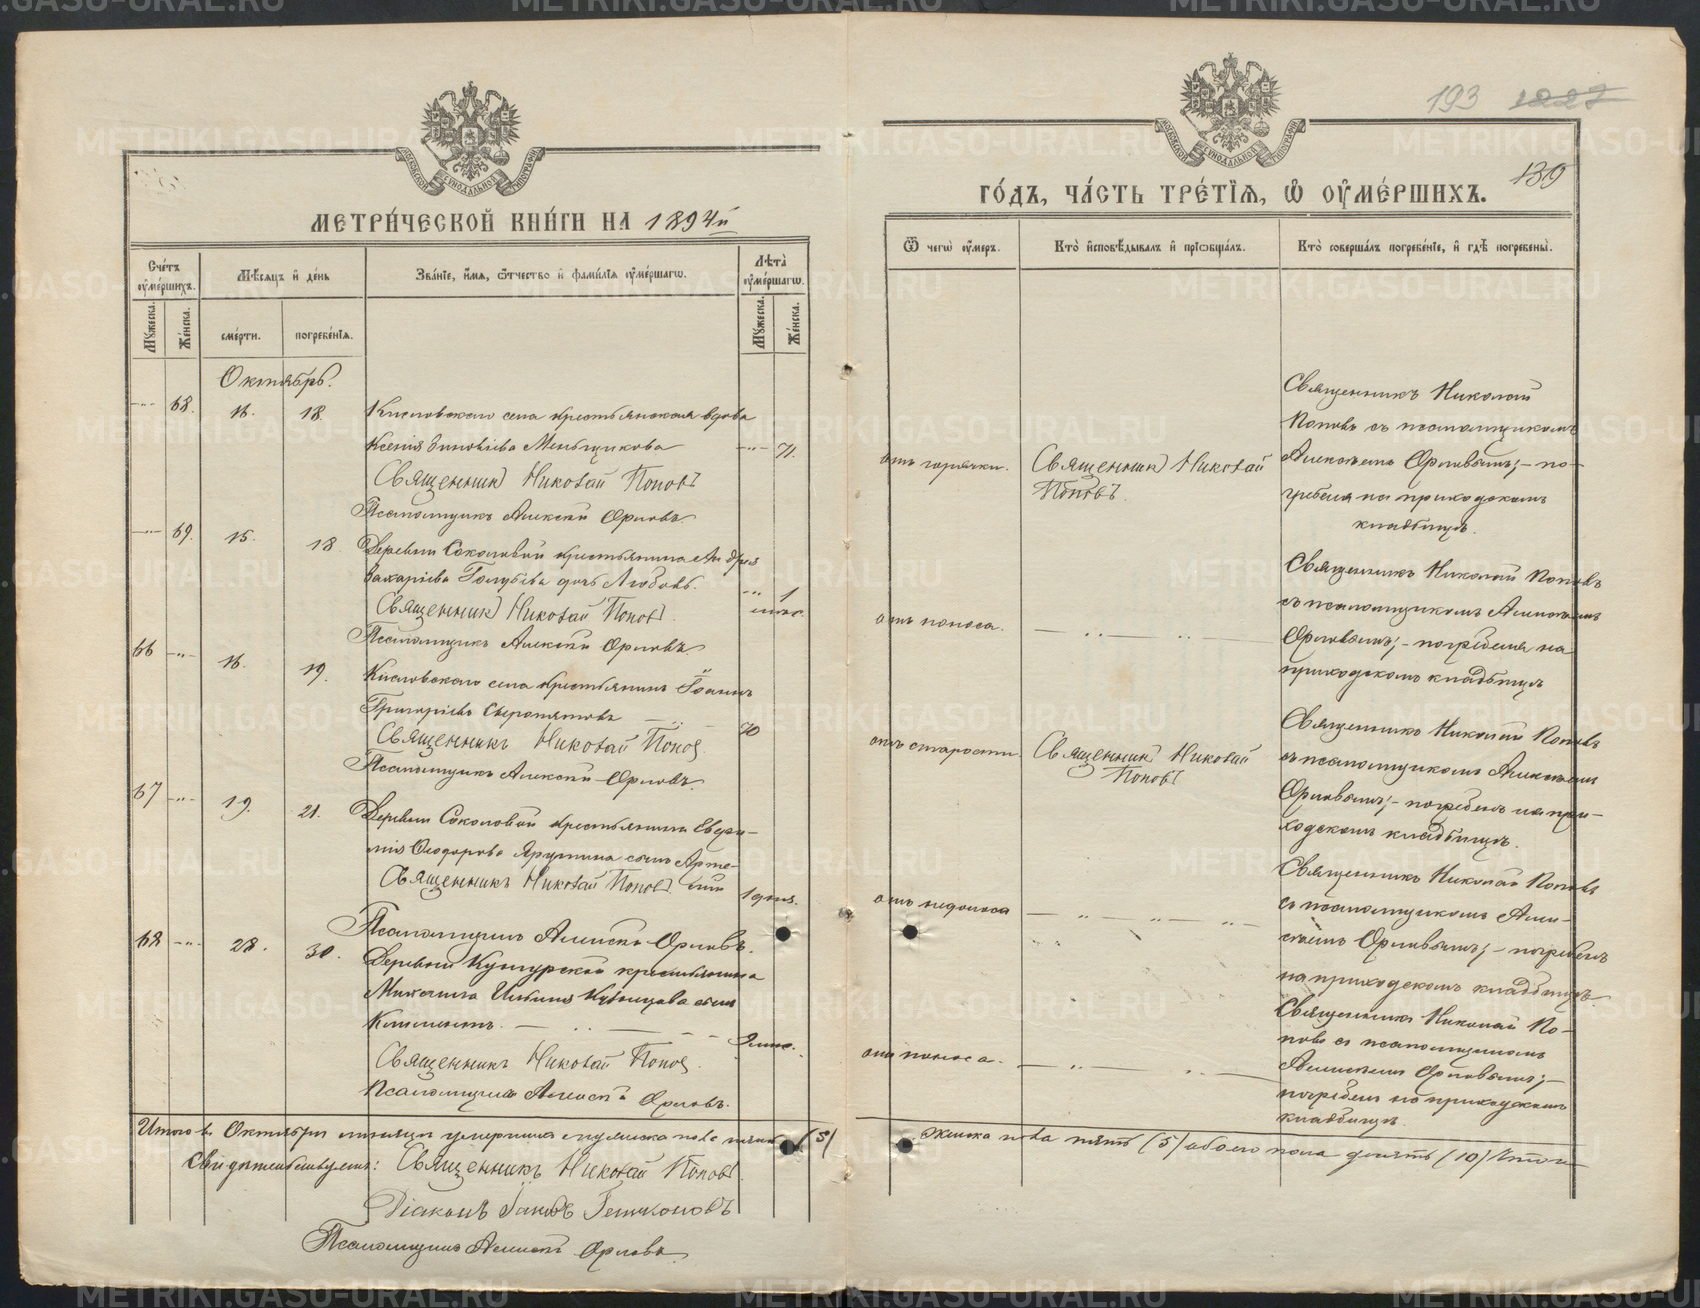 193
139
МЕТРИ́ЧЕСКОЙ КНИ́ГИ НА 1894й
ГО́ДЪ, ЧА́СТЬ ТРЕ́ТЇѦ, Ѡ҆ ОУ҆МЕ́РШИХЪ.
Сче́тъ оу҆ме́ршихъ.
Мꙋ́жеска.
Же́нска.
Мѣ́сѧцъ и҆ де́нь
сме́рти.
погребе́нїѧ.
Зва́нїе, и҆́мѧ, ѻ҆́тчество и҆ фами́лїѧ оу҆ме́ршагѡ.
Лѣ́та оу҆ме́ршагѡ.
Мꙋ́жеска.
Же́нска.
Ѿ чегѡ̀ оу҆́меръ.
Кто̀ и҆сповѣ́дывалъ и҆ прїѡбща́лъ.
Кто̀ соверша́лъ погребе́нїе, и҆ гдѣ̀ погребены̀.
Октябрь.
68. 16. 18.
Кисловскаго села крестьянская вдова
Ксенія Зиновіева Меньщикова 71.
Священникъ Николай Поповъ
Псаломщикъ Алексѣй Орловъ.
отъ горячки.
Священникъ Николай
Поповъ.
Священникъ Николай
Поповъ съ псаломщикомъ
Алексѣемъ Орловымъ; – по-
гребена на приходскомъ
кладбищѣ.
69. 15. 18.
Деревни Соколовой крестьянина Андрея
Захаріева Голубева дочь Любовь. 1
Священникъ Николай Поповъ.
Псаломщикъ Алексѣй Орловъ.
отъ поноса.
Священникъ Николай Поповъ
съ псаломщикомъ Алексѣемъ
Орловымъ; – погребена на
приходскомъ кладбищѣ
66 16. 19.
Кисловскаго села крестьянинъ Іоаннъ
Григорьевъ 70
Священникъ Николай Поповъ.
Псаломщикъ Алексѣй Орловъ.
отъ старости
Священникъ Николай
Поповъ
Священникъ Николай Поповъ
съ псаломщикомъ Алексѣемъ
Орловымъ; – погребенъ на при-
ходскомъ кладбищѣ.
67 19. 21.
Деревни Соколовой крестьянина Евфи-
мія Ѳеодорова сынъ Арте-
Священникъ Николай Поповъ
1 дня.
Псаломщикъ Алексѣй Орловъ.
отъ недоноса
Священникъ Николай Поповъ
съ псаломщикомъ Алек-
сѣемъ Орловымъ; – погребенъ
на приходскомъ кладбищѣ.
68 28. 30.
Деревни крестьянина
Михаила Ильина Кузнецова сынъ
Климентъ. 2 мѣс.
Священникъ Николай Поповъ.
Псаломщикъ Алексѣй Орловъ.
отъ поноса.
Священникъ Николай По-
повъ съ псаломщикомъ
Алексѣемъ Орловымъ; –
погребенъ на приходскомъ
кладбищѣ.
Итого въ Октябрѣ мѣсяцѣ умершихъ мужеска пола пять (5)
женска пола пять (5) обоего пола десять (10)
Свидѣтельствуемъ: Священникъ Николай Поповъ.
Діаконъ
Псаломщикъ Алексѣй Орловъ.